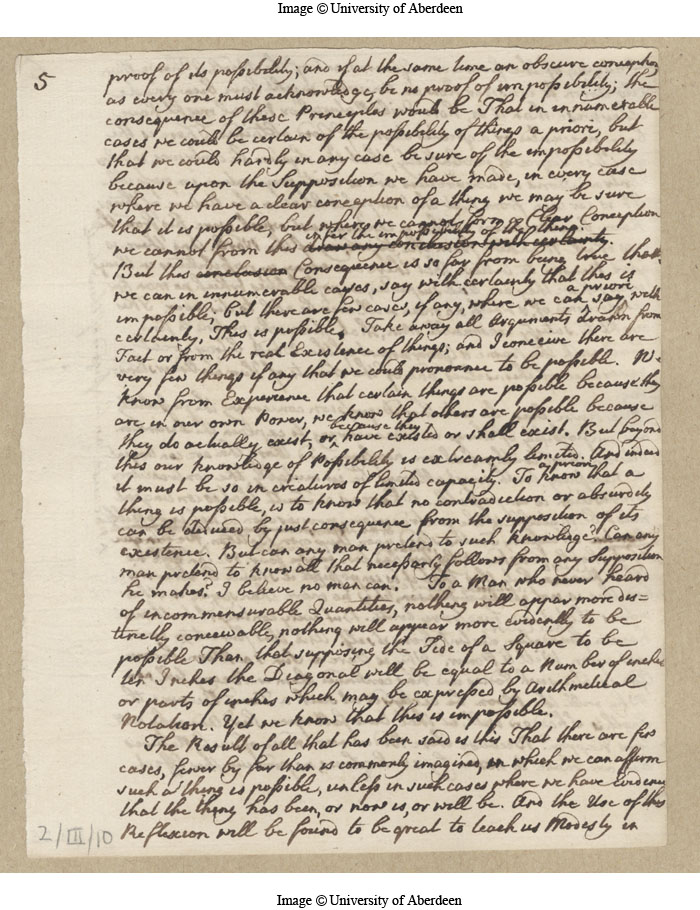 Image © University of Aberdeen
5
proof of its possibility; and if at the same time an obscure conception
as every one must acknowledge, be no proof of impossibility; the
consequence of these Principles would be That in innumerable
cases we could be certain of the possibility of things a priori, but
that we could hardly in any case be sure of the impossibility
because upon the Supposition we have made, in every case
where we have a clear conception of a thing we may be sure
that it is possible, but where we cannot form a Clear Conception
infer the impossibility of the thing.
we cannot from this draw any conclusion with certainty.
But this conclusion Consequence is so far from being true that
we can in innumerable cases, say with certainty that this is
a priori
impossible; but there are few cases, if any, where we can say with
certainty, This is possible. Take away all Arguments drawn from
Fact or from the real Existence of things; and I conceive there are
very few things if any that we could pronounce to be possible. We
know from Experience that certain things are possible because they
are in our own Power, we know that others are possible because
because they
they do actually exist, or have existed or shall exist. But beyond
this our knowledge of Possibility is extreamly limited. And indeed
it must be so in creatures of limited capacity. To know that a
a priori
thing is possible, is to know that no contradiction or absurdity
can be deduced by just consequence from the supposition of its
existence. But can any man pretend to such knowledge? Can any
man pretend to know all that necessarly follows from any Supposition
he makes? I believe no man can. To a Man who never heard
of incommensurable Quantities, nothing will appear more dis=
tinctly conceivable, nothing will appear more evidently to be
possible Than that supposing the Side of a Square to be
ten Inches the Diagonal will be equal to a Number of inches
or parts of inches which may be expressed by Arithmetical
Notation. Yet we know that this is impossible.
The Result of all that has been said is this That there are few
cases, fewer by far than is commonly imagined, in which we can affirm
such a thing is possible, unless in such cases where we have Evidence
that the thing has been, or now is, or will be. And the Use of this
Reflexion will be found to be great to teach us Modesty in
2/III/10
Image © University of Aberdeen